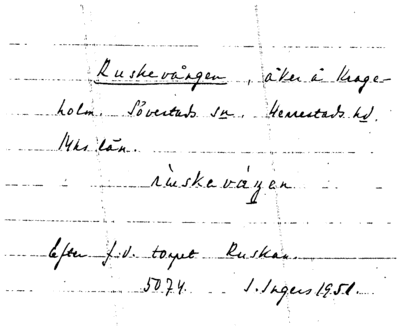 Ruskevången, åker å Krage-
holm. Sövestads sn. Herrestads hd.
Mhs län.
ruskevången
Efter f.d. torpet Ruskan.
5074. I. Ingers 1951.